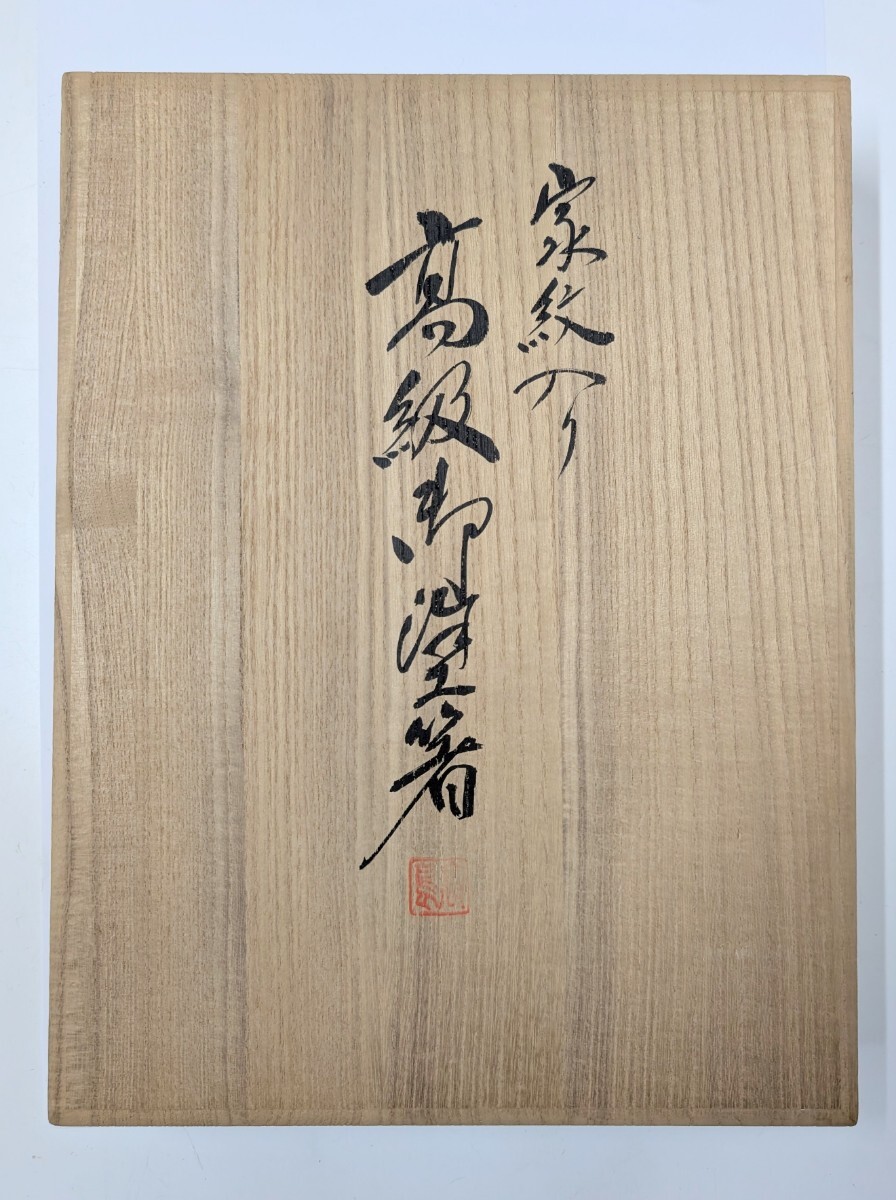 家紋入り
高級御塗箸